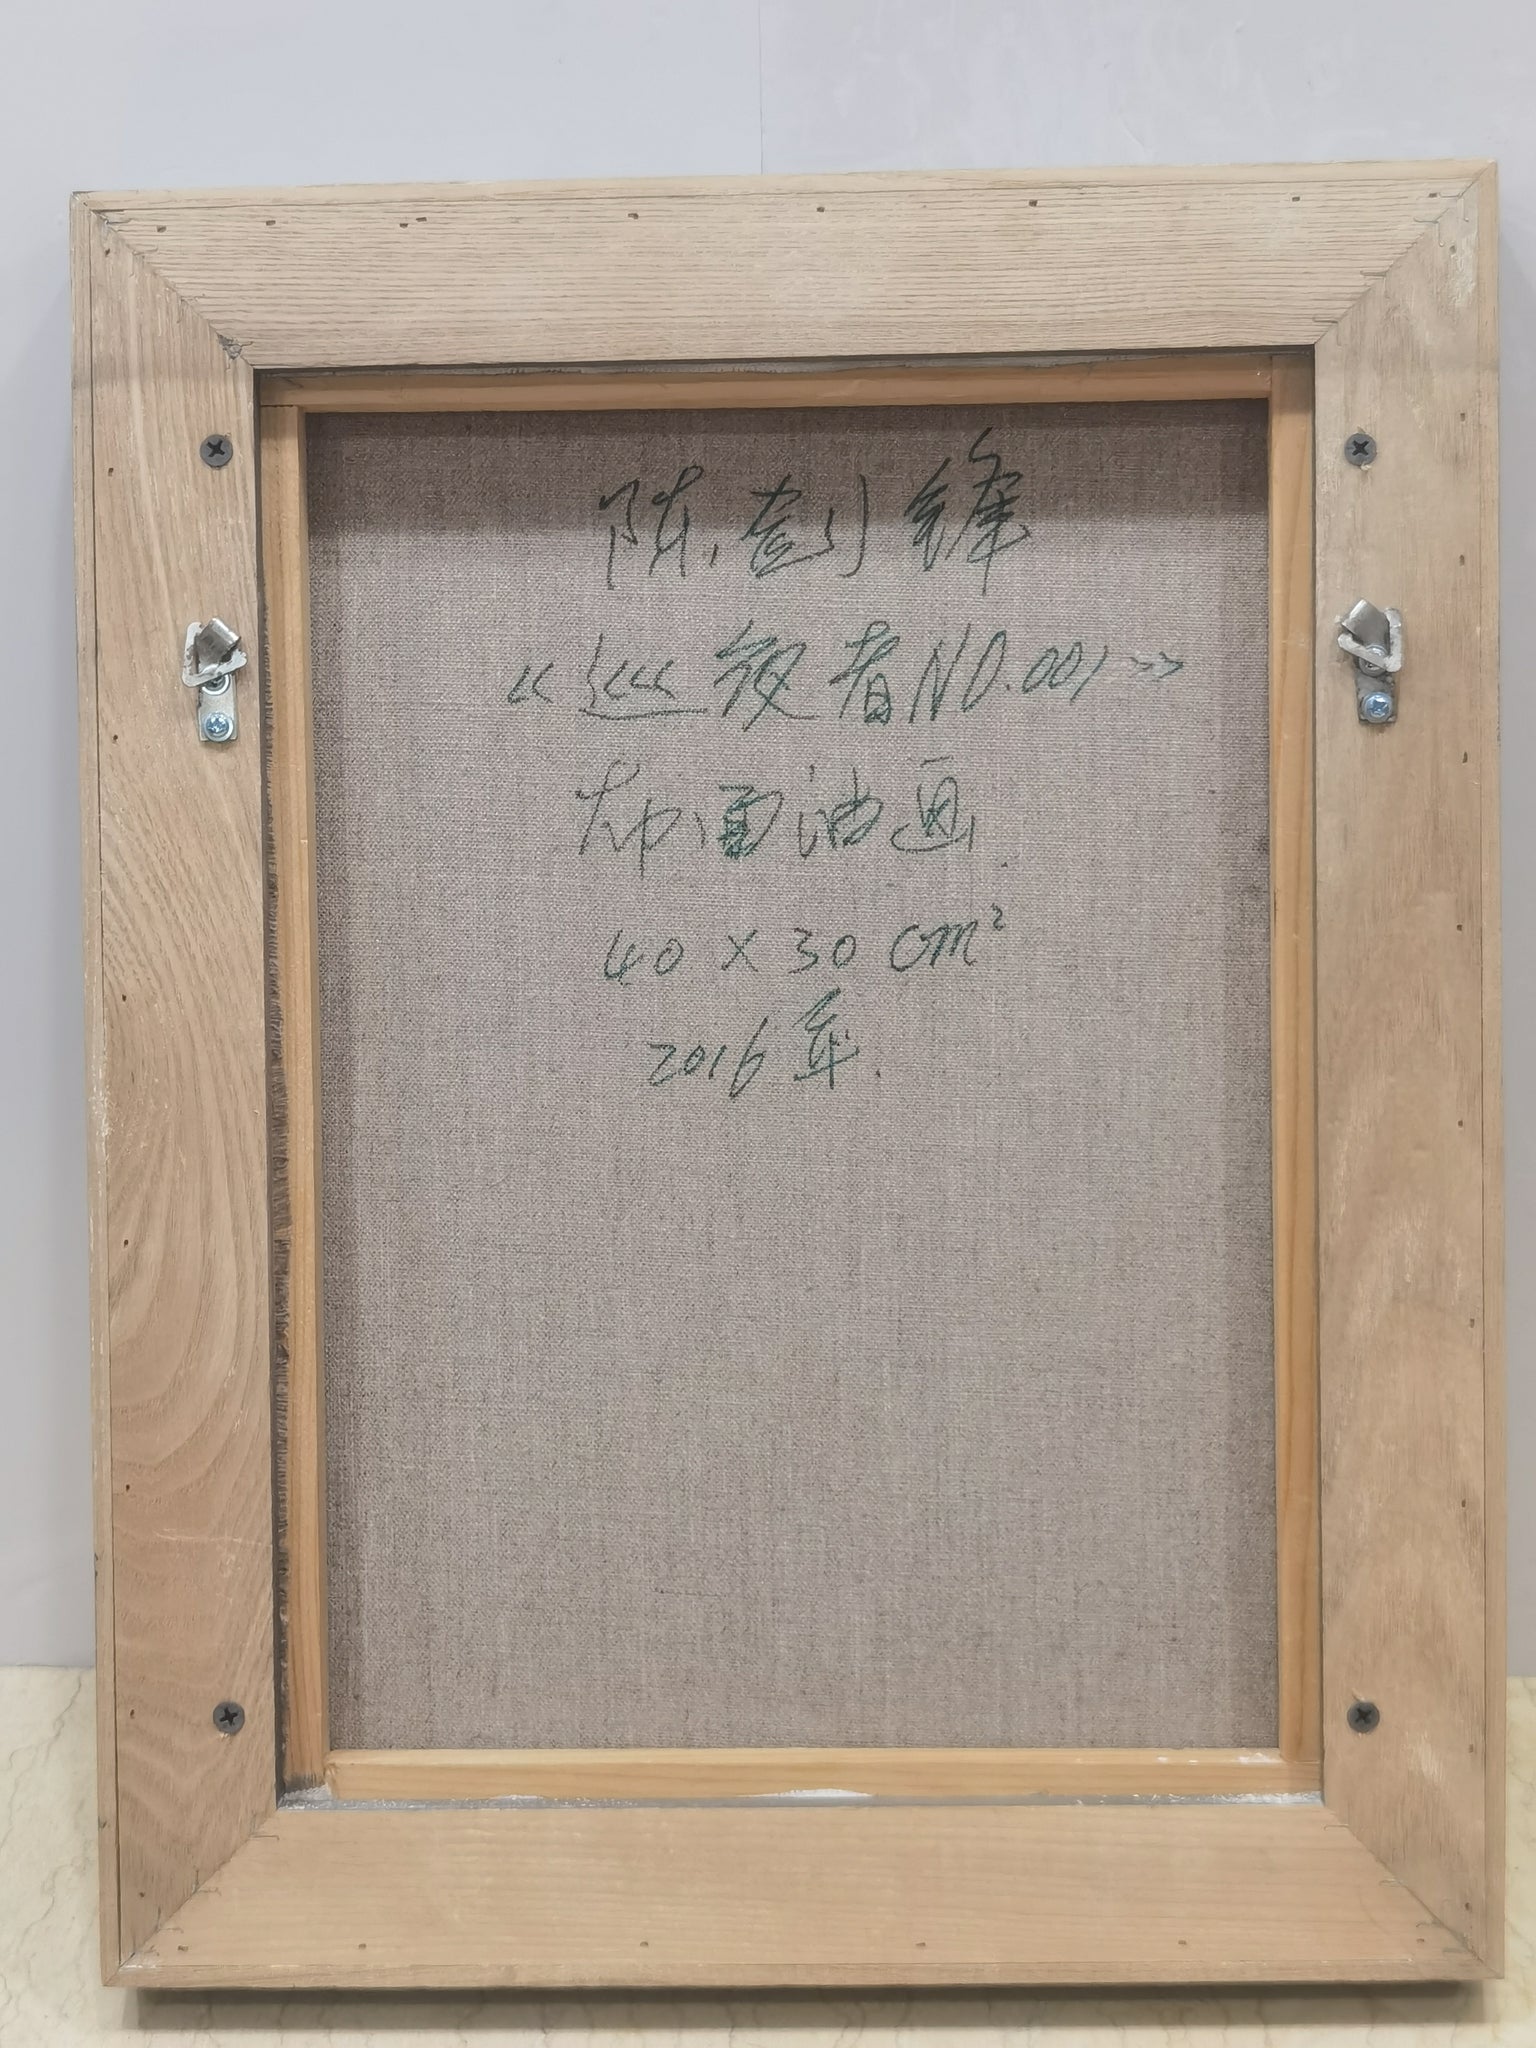 陈剑锋
《巡夜者NO.001》
布面油画
40×30cm²
2016年.